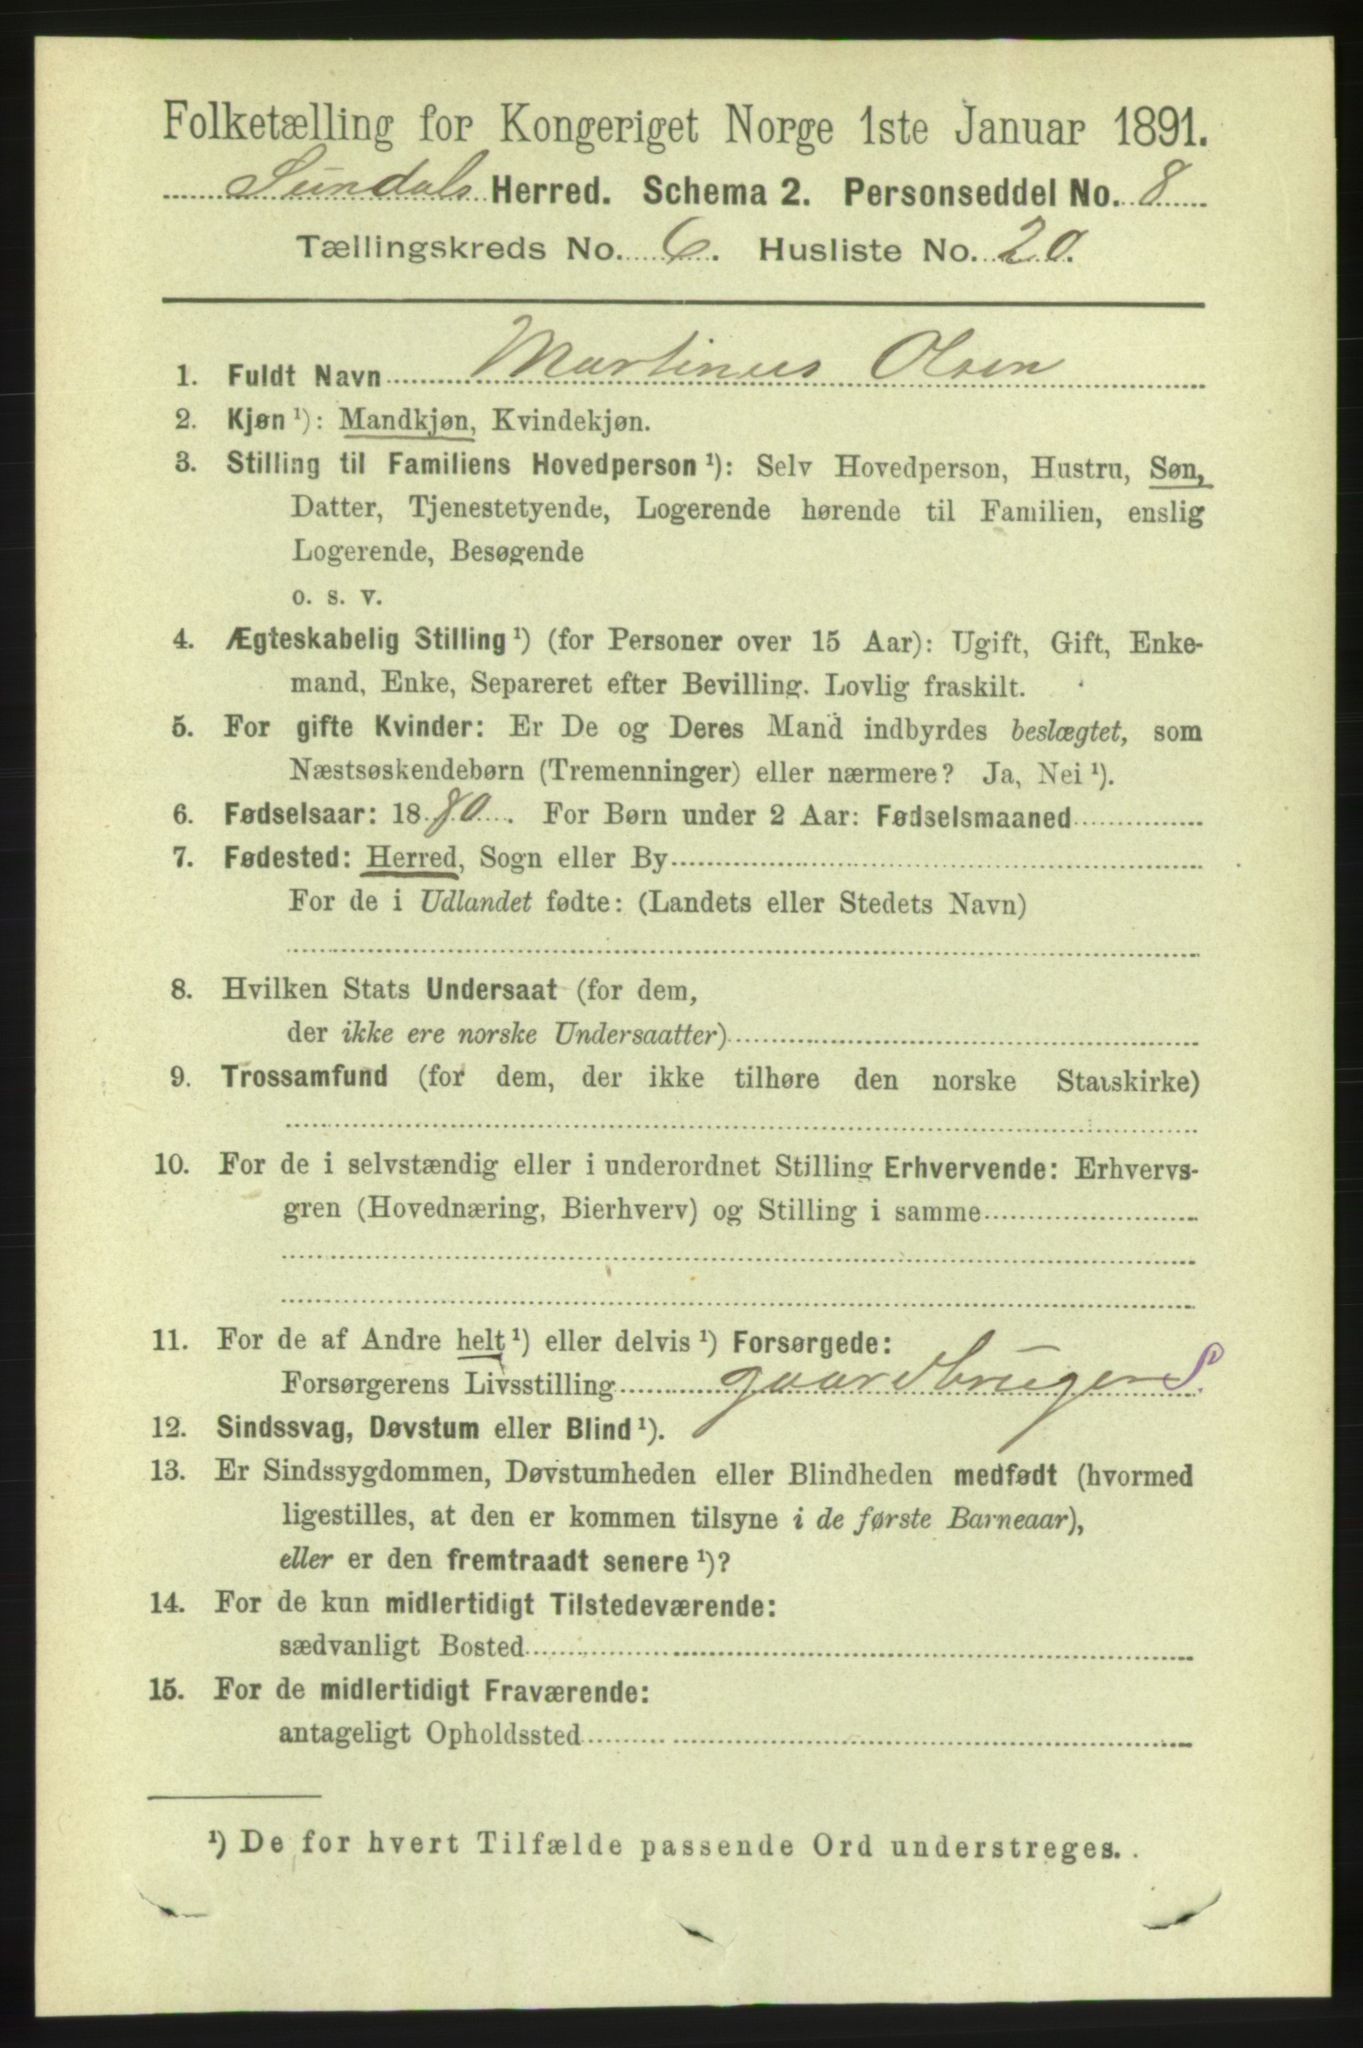 Folketælling for Kongeriget Norge 1ste Januar 1891.
Sundals Herred. Schema 2. Personseddel No. 8
Tællingskreds No. 6. Husliste No. 20.
1. Fuldt Navn Martinus Olsen
2. Kjøn ¹): Mandkjøn, Kvindekjøn.
3. Stilling til Familiens Hovedperson ¹): Selv Hovedperson, Hustru, Søn,
Datter, Tjenestetyende, Logerende hørende til Familien, enslig
Logerende, Besøgende
o. s. v.
4. Ægteskabelig Stilling ¹) (for Personer over 15 Aar): Ugift, Gift, Enke-
mand, Enke, Separeret efter Bevilling. Lovlig fraskilt.
5. For gifte Kvinder: Er De og Deres Mand indbyrdes beslægtet, som
Næstsøskendebørn (Tremenninger) eller nærmere? Ja, Nei ¹).
6. Fødselsaar: 1880. For Børn under 2 Aar: Fødselsmaaned
7. Fødested: Herred, Sogn eller By
For de i Udlandet fødte: (Landets eller Stedets Navn)
8. Hvilken Stats Undersaat (for dem,
der ikke ere norske Undersaatter)
9. Trossamfund (for dem, der ikke tilhøre den norske Statskirke)
10. For de i selvstændig eller i underordnet Stilling Erhvervende: Erhvervs-
gren (Hovednæring, Bierhverv) og Stilling i samme
11. For de af Andre helt ¹) eller delvis ¹) Forsørgede:
Forsørgerens Livsstilling gaardbruger S.
12. Sindssvag, Døvstum eller Blind ¹).
13. Er Sindssygdommen, Døvstumheden eller Blindheden medfødt (hvormed
ligestilles, at den er kommen tilsyne i de første Barneaar),
eller er den fremtraadt senere ¹)?
14. For de kun midlertidigt Tilstedeværende:
sædvanligt Bosted
15. For de midlertidigt Fraværende:
antageligt Opholdssted
¹) De for hvert Tilfælde passende Ord understreges.